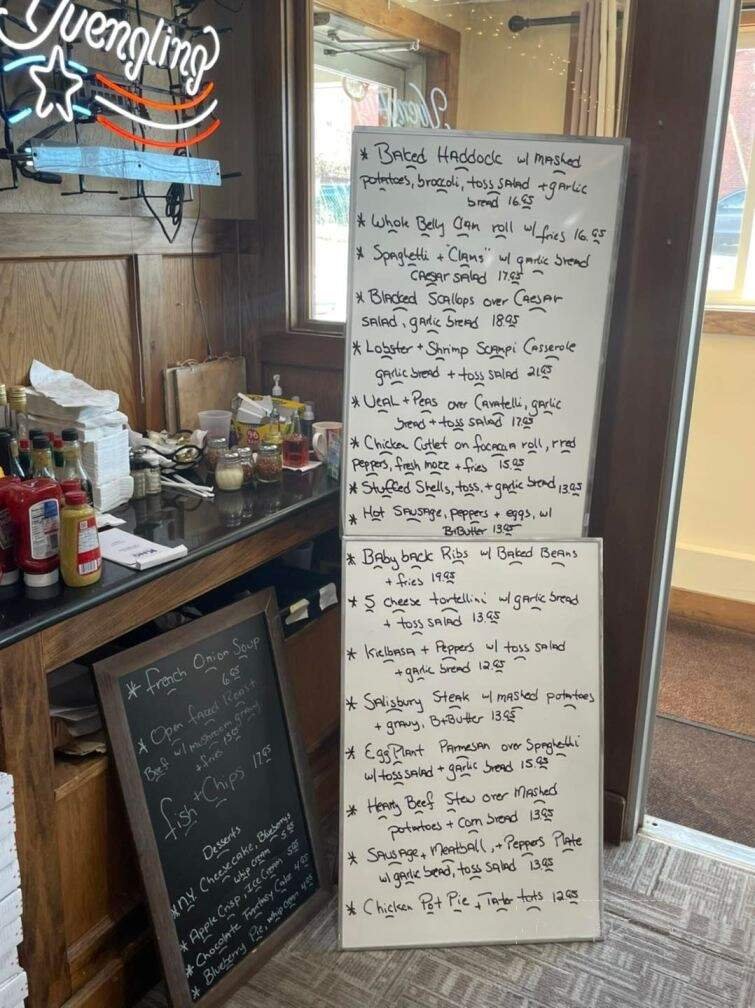 Yuengling
* Baked Haddock w/ mashed
potatoes, broccoli, toss salad + garlic
bread 16.95
* Whole Belly Clam roll w/ fries 16.95
* Spaghetti + "Clams" w/ garlic bread
Caesar salad 17.95
* Blacked Scallops over Caesar
salad, garlic bread 18.95
* Lobster + Shrimp Scampi Casserole
garlic bread + toss salad 21.95
* Veal + Peas over Cavatelli, garlic
bread + toss salad 17.95
* Chicken Cutlet on focaccia roll, r red
peppers, fresh mozz + fries 15.95
* Stuffed Shells, toss, + garlic bread 13.95
* Hot Sausage, peppers + eggs, w/
B+Butter 13.95
* Baby back Ribs w/ Baked Beans
+ fries 19.95
* 5 cheese tortellini w/ garlic bread
+ toss salad 13.95
* Kielbasa + Peppers w/ toss salad
+ garlic bread 12.95
* Salisbury Steak w/ mashed potatoes
+ gravy, B+Butter 13.95
* Eggplant Parmesan over Spaghetti
w/ toss salad + garlic bread 15.95
* Hearty Beef Stew over Mashed
potatoes + Corn bread 13.95
* Sausage, Meatball, + Peppers Plate
w/ garlic bread, toss salad 13.95
* Chicken Pot Pie + Tater tots 12.95
* French Onion Soup
6.95
* Open faced Roast
Beef w/ mushroom gravy
+ fries 13.95
fish + Chips 17.95
Desserts
* NY Cheesecake, Blueberry
whip cream 5.95
* Apple Crisp, Ice Cream 5.95
* Chocolate Fantasy Cake 4.95
* Blueberry Pie, whip cream 4.95